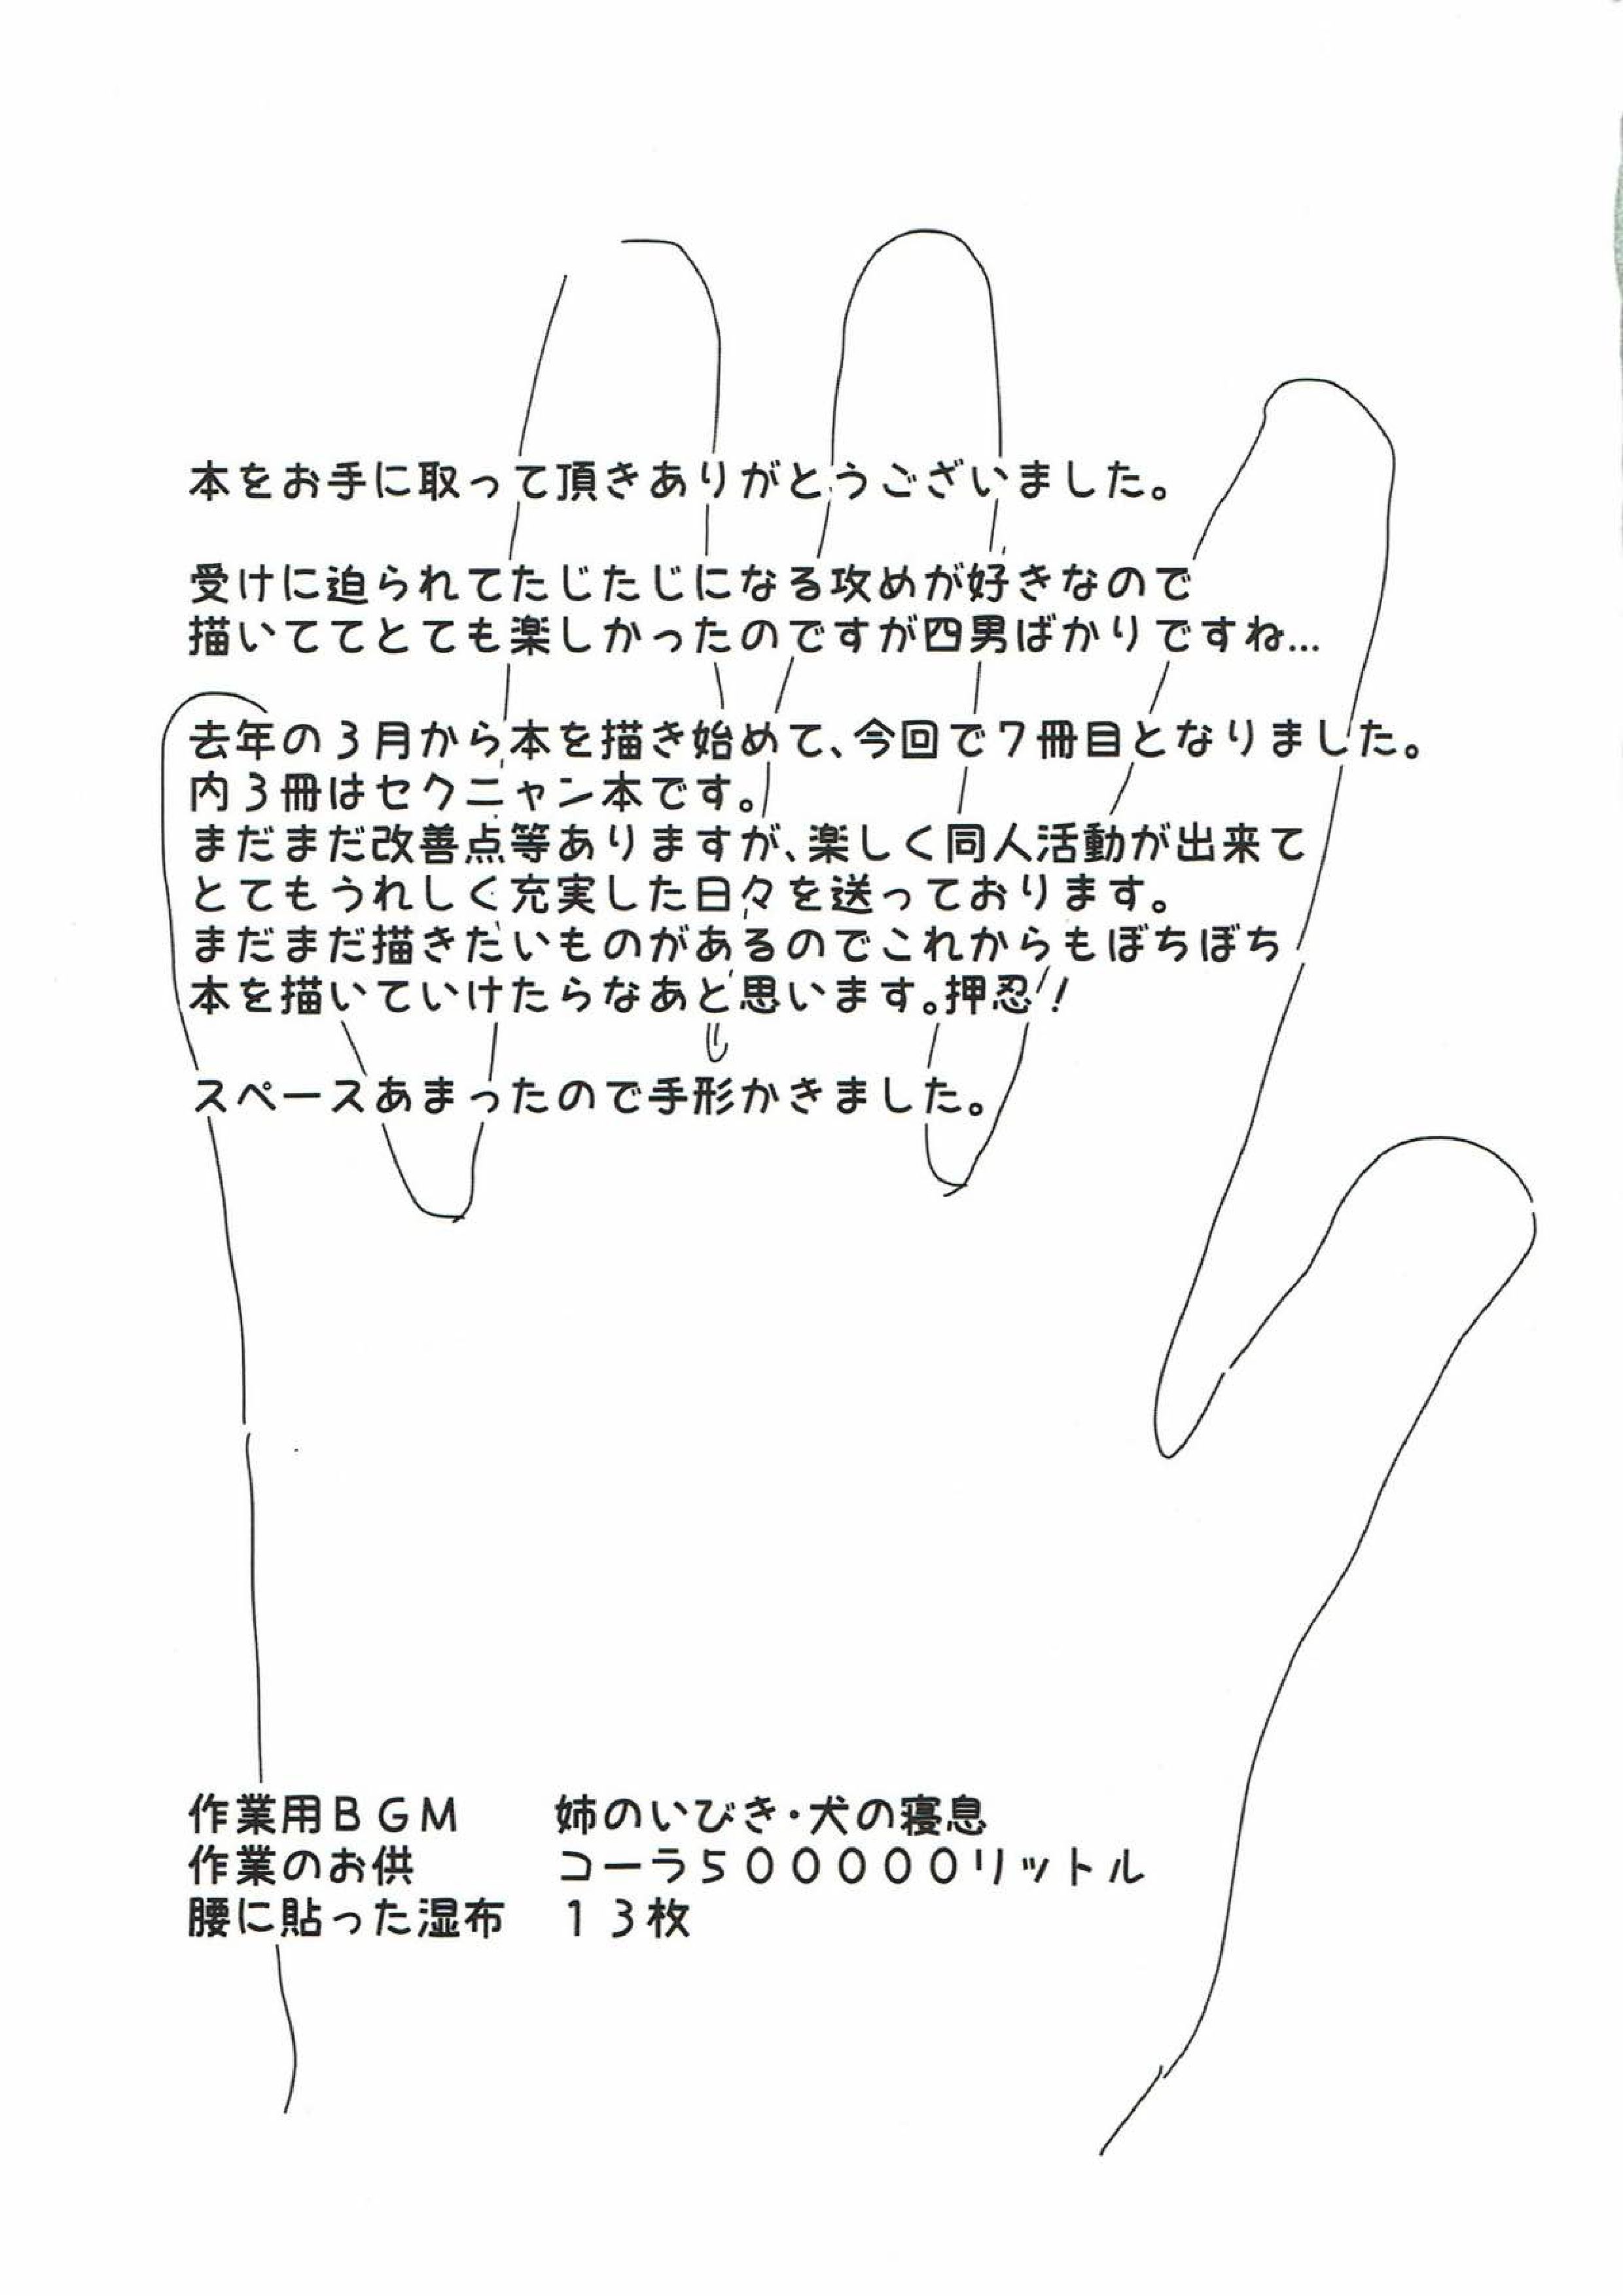 本をお手に取って頂きありがとうございました。
受けに迫られてたじたじになる攻めが好きなので
描いててとても楽しかったのですが四男ばかりですね…
去年の３月から本を描き始めて、今回で７冊目となりました。
内３冊はセクニャン本です。
まだまだ改善点等ありますが、楽しく同人活動が出来て
とてもうれしく充実した日々を送っております。
まだまだ描きたいものがあるのでこれからもぼちぼち
本を描いていけたらなあと思います。押忍！
スペースあまったので手形かきました。
作業用ＢＧＭ　　姉のいびき・犬の寝息
作業のお供　　　コーラ５０００００リットル
腰に貼った湿布　１３枚